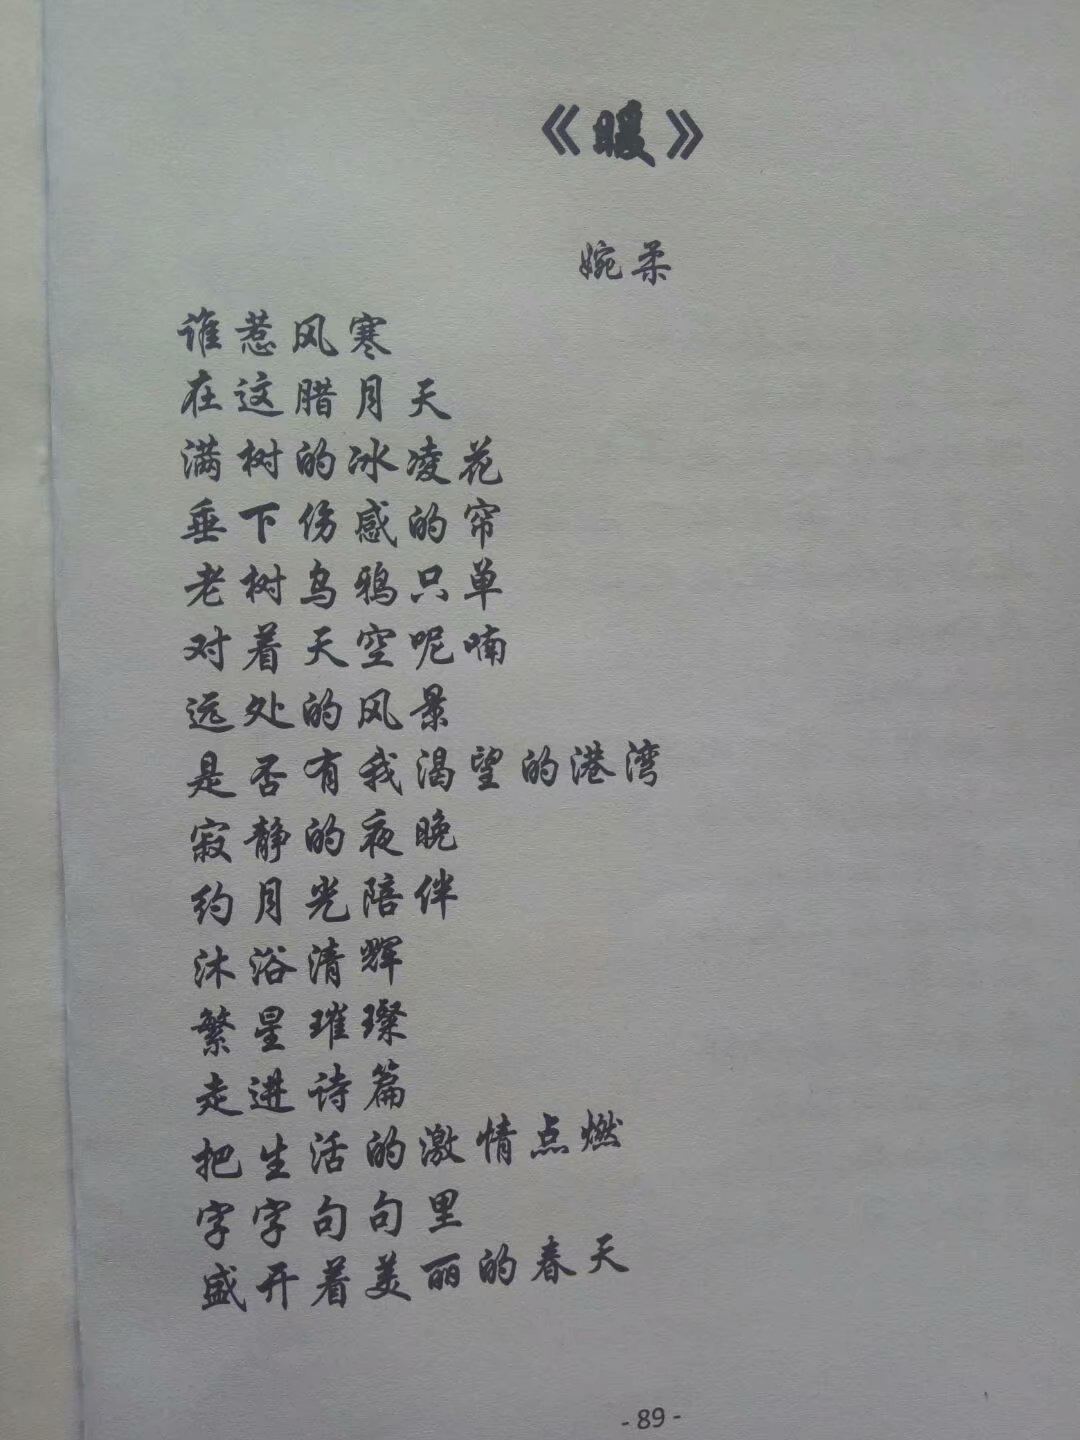 《暖》
婉柔
谁惹风寒
在这腊月天
满树的冰凌花
垂下伤感的帘
老树乌鸦只单
对着天空呢喃
远处的风景
是否有我渴望的港湾
寂静的夜晚
约月光陪伴
沐浴清辉
繁星璀璨
走进诗篇
把生活的激情点燃
字字句句里
盛开着美丽的春天
- 89 -